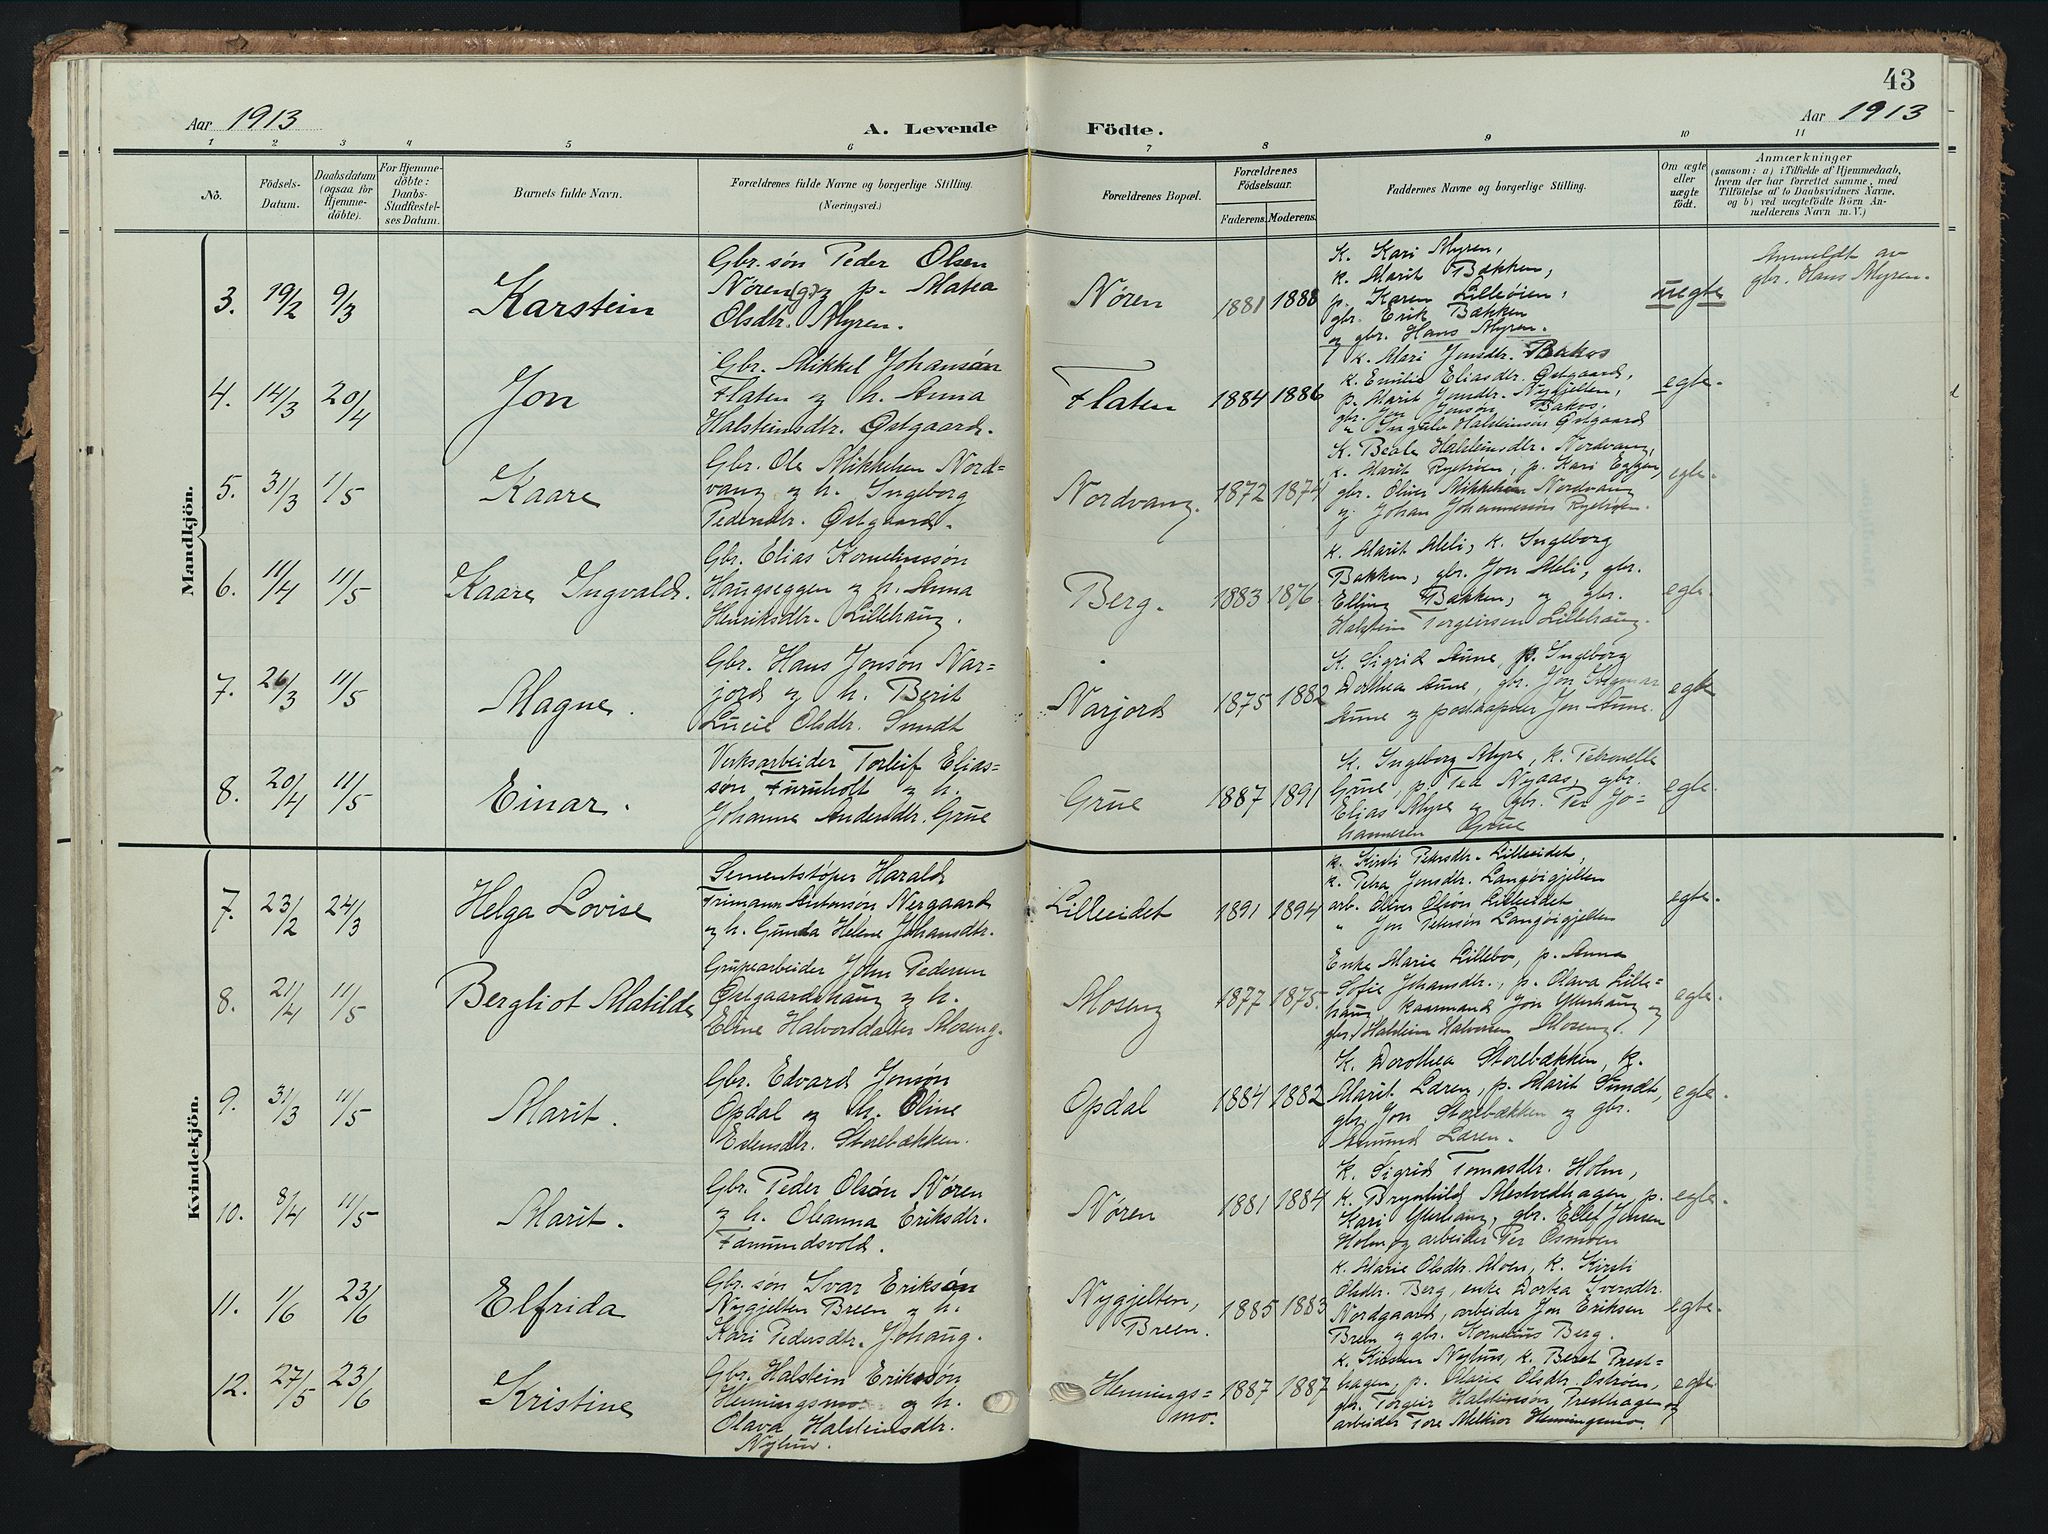 43
Aar 1913
A. Levende Födte.
Aar 1913
1 2 3 4 5 6 7 8 9 10 11
No.
Födsels-Datum.
Daabsdatum (ogsaa for Hjemmedöbte).
For Hjemmedöbte: Daabs-Stadfæstelses Datum.
Barnets fulde Navn.
Forældrenes fulde Navne og borgerlige Stilling. (Næringsvei.)
Forældrenes Bopæl.
Forældrenes Födselsaar.
Faderens. Moderens.
Faddernes Navne og borgerlige Stilling.
Om ægte eller uægte födt.
Anmærkninger
(saasom: a) i Tilfælde af Hjemmedaab, hvem der har forrettet samme, med Tilföielse af to Daabsvidners Navne, og b) ved uegtefödte Börn Anmelderens Navn m. V.)
Mandkjön.
3. 19/2 9/3 Karstein
Gbr. søn Peder Olsen
Nøren (g) og p. Matea
Olsdtr. Myren.
Nøren 1881 1888
K. Kari Myren,
k. Marit Bækken,
p. Karen Lilleøien,
gbr. Erik Bækken
og gbr. Hans Myren.
uegte
Anmeldt av
gbr. Hans Myren.
4. 14/3 20/4 Jon
Gbr. Mikkel Johansøn
Flaten og h. Anna
Halsteinsdtr. Østgaard.
Flaten 1884 1886
k. Mari Jonsdtr. Bakos
k. Emilie Eliasdtr. Østgaard,
p. Marit Jonsdtr. Nygjelten,
gbr. Jon Jonsøn Bakos,
" Halsteinsøn Østgaard
egte.
5. 31/3 1/5 Kaare
Gbr. Ole Mikkelsen Nord=
vang og h. Ingeborg
Pedersdtr. Østgaard.
Nordvang. 1872 1874
K. Beate Halsteinsdtr. Nordvang,
k. Marit Rystrøen, p. Kari Eggen,
gbr. Oliver Mikkelsen Nordvang
og Johan Johannessøn Rystrøen.
egte.
6. 11/4 11/5 Kaare Ingvald.
Gbr. Elias Korneliussøn
Haugseggen og h. Anna
Henriksdtr. Lillehaug.
Berg. 1883 1876
k. Marit Meli, k. Ingeborg
Bakken, gbr. Jon Meli, gbr.
Elling Bakken, og gbr.
Halstein Torgeirsen Lillehaug.
egte.
7. 26/3 11/5 Magne.
Gbr. Hans Jonson Nar=
jord og h. Berit
Lucie Olsdtr. Sundt
Narjord 1875 1882
K. Sigrid Aune, p. Ingeborg
Dorthea Aune, gbr. Jon
Aune og Jon Aune.
egte
8. 20/4 11/5 Einar.
Verksarbeider Torleif Elias=
søn Furuholt og h.
Johanne Andersdtr. Grue
Grue 1887 1891
K. Ingeborg Myre, k. Petronelle
Grue, p. Tea Nyaas, gbr.
Elias Myre og gbr. Per Jo=
hannesen Grue
egte.
Kvindekjön.
7. 23/2 24/3 Helga Lovise
Sementstøper Harald
Trimann Antonsøn Nergaard
og h. Gunda Helene Johansdtr.
Lilleeidet 1891 1894
k. Kirsti Petersdtr. Lilleeidet,
k. Petra Jonsdtr. Langøigjelten
arb. Oliver Olsøn Lilleeidet
" Jon Petersøn Langøigjelten
egte.
8. 21/4 11/5 Bergliot Matilde
Grubearbeider John Pedersen
Østgaardshaug og h.
Eline Halvorsdatter Moseng.
Moseng 1877 1875.
Enke Marie Lillebo, p. Anna
Sofie Johansdtr., p. Olava Lille=
haug, kaarmand Jon Ytterhaug og
gbr. Halstein Halvorsen Moseng.
egte.
9. 31/3 11/5 Marit.
Gbr. Edvard Jonsøn
Opdal og h. Oline
Estensdtr. Storebækken.
Opdal 1884 1882
K. Dorothea Storebækken, k.
Marit Læren, p. Marit Sundt,
gbr. Jon Storebækken og gbr.
Amund Læren.
egte.
10. 8/4 11/5 Marit.
Gbr. Peder Olsøn Nøren
og h. Oleanna Eriksdtr.
Edmundsvold.
Nøren 1881 1884
k. Sigrid Tomasdtr. Holm,
k. Brynhild Mestvedhagen, p.
Kari Ytterhaug, gbr. Ellef Jonsen
Holm og arbeider Per Osmoen
egte.
11. 1/6 23/6 Elfrida
Gbr. søn Ivar Eriksøn
Nygjelten Breen og h.
Kari Pedersdtr. Johaug.
Nygjelten, Breen. 1885 1883
k. Marie Olsdtr. Moen, k. Kirsti
Olsdtr. Berg, enke Dortea Iversdtr.
Nordgaard, arbeider Jon Eriksen
Breen og gbr. Kornelius Berg.
egte.
12. 27/5 23/6 Kristine
Gbr. Halstein Eriksøn
Henningsmo og h.
Olava Halsteinsdtr.
Nyhus.
Hennings=
mo. 1887 1887
k. Kirsten Nyhus, k. Beret Prest=
hagen, p. Marie Olsdtr. Østrøen,
gbr. Torgeir Halsteinsøn Presthagen og
arbeider Tore Melkior Henningsmo.
egte